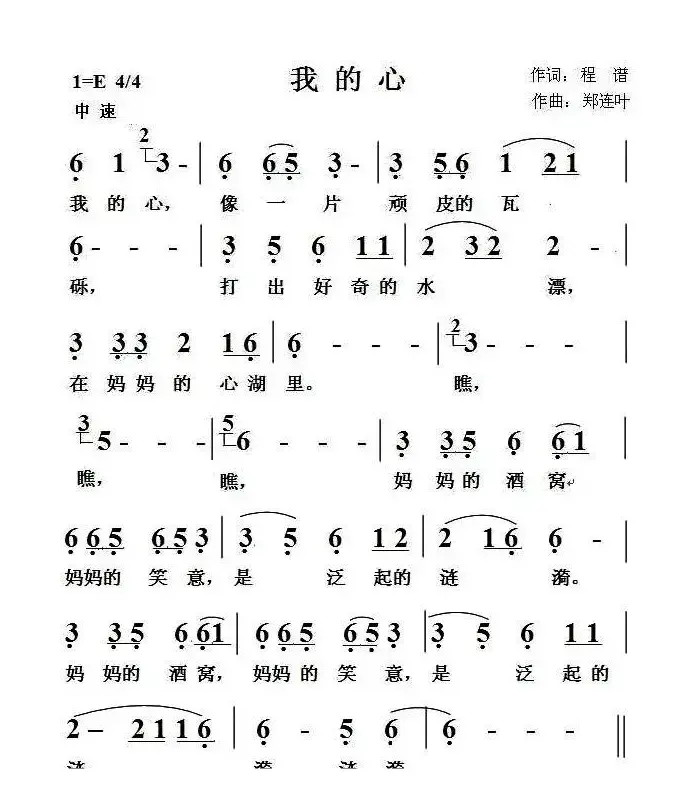 1=E 4/4 我的心 作词：程 谱
中速 作曲：郑连叶
6 1 2 3 - | 6 6 5 3 - | 3 5 6 1 2 1 |
我的心，像一片顽皮的瓦
6 - - - | 3 5 6 1 1 | 2 3 2 2 - |
砾，打出好奇的水漂，
3 3 3 2 1 6 | 6 - - - | 2 3 - - - |
在妈妈的心湖里。瞧，
3 5 - - - | 5 6 - - - | 3 3 5 6 6 1 |
瞧，瞧，妈妈的酒窝
6 6 5 6 5 3 | 3 5 6 1 2 | 2 1 6 6 - |
妈妈的笑意，是泛起的涟漪。
3 3 5 6 6 1 | 6 6 5 6 5 3 | 3 5 6 1 1 |
妈妈的酒窝，妈妈的笑意，是泛起的
2 - 2 1 1 6 | 6 - 5 6 | 6 - - - ‖